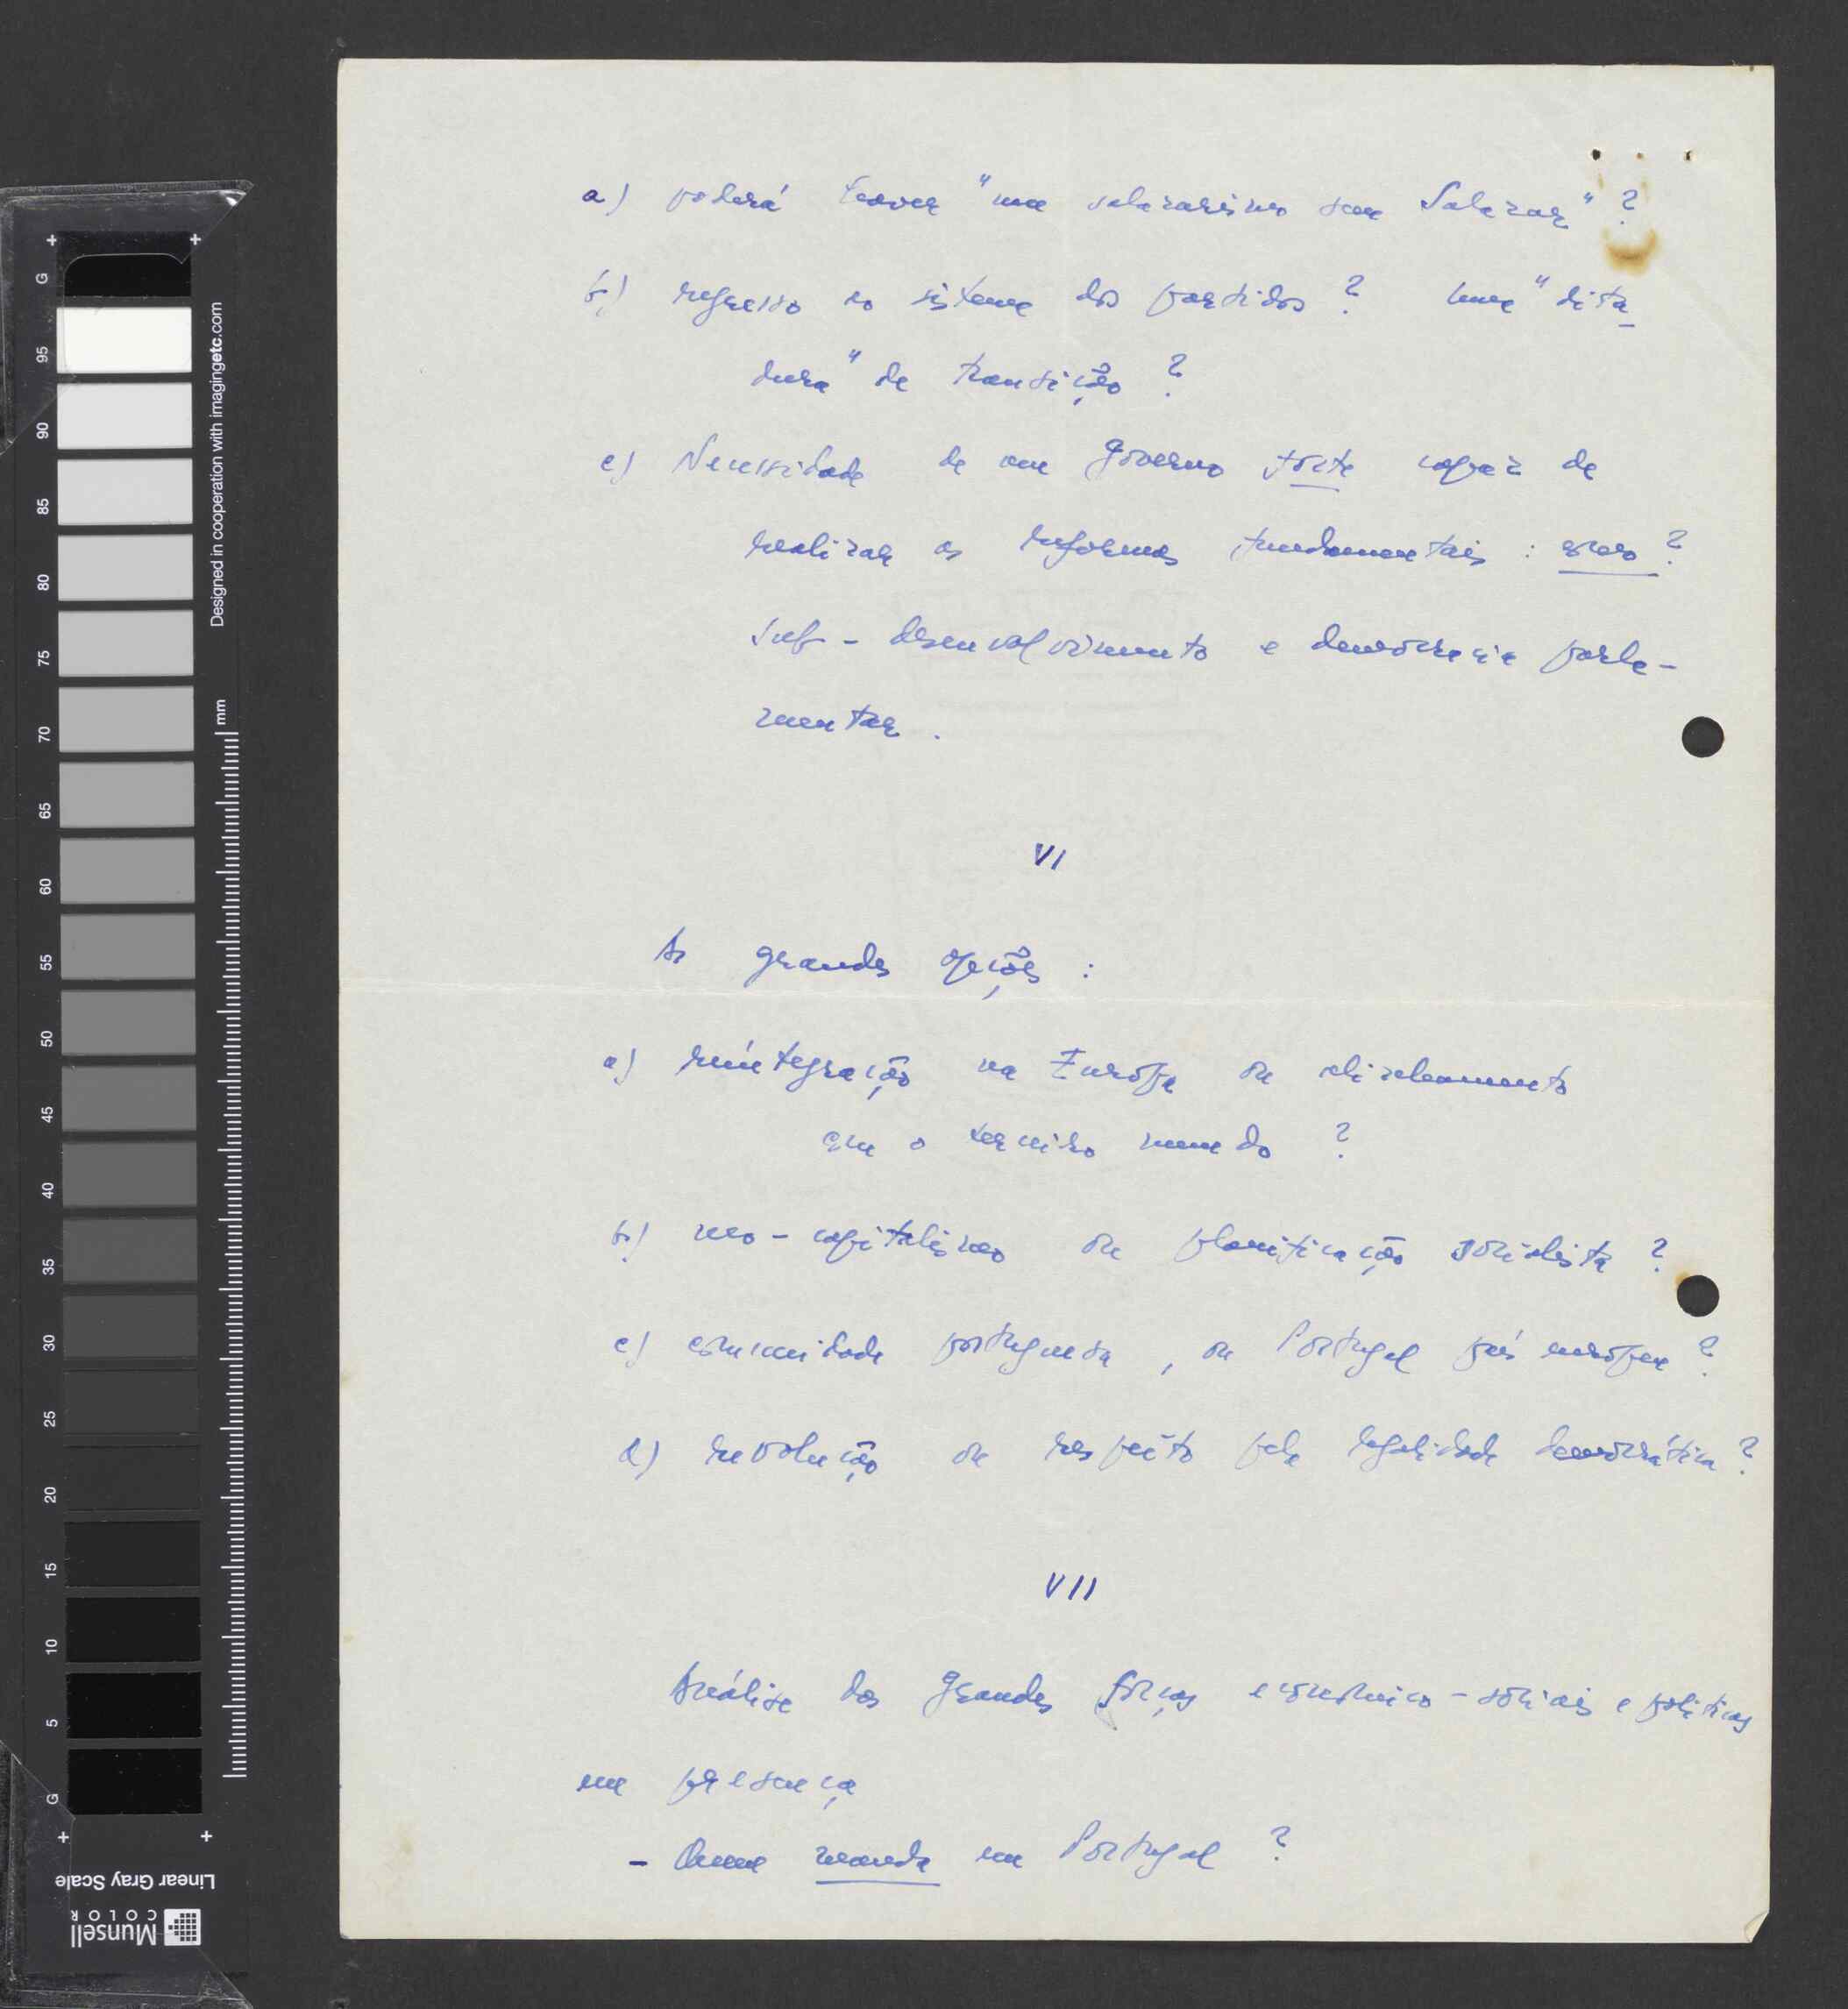 a) poderá haver "um salazarismo sem Salazar"?
b) regresso ao sistema dos partidos? Uma "dita-
dura" de transição?
c) Necessidade de um governo forte capaz de
realizar as reformas fundamentais: como?
Sub-desenvolvimento e democracia parla-
mentar.
VI
As grandes opções:
a) reintegração na Europa ou alinhamento
com o terceiro mundo?
b) neo-capitalismo ou planificação socialista?
c) comunidade portuguesa, ou Portugal país europeu?
d) revolução ou respeito pela legalidade democrática?
VII
Análise das grandes forças económico-sociais e políticas
em presença
- Quem manda em Portugal?
Designed in cooperation with imagingetc.com
mm
G 95 90 85 80 75 70 65 60 55 50 45 40 35 30 25 20 15 10 5 G
Linear Gray Scale
Munsell
COLOR